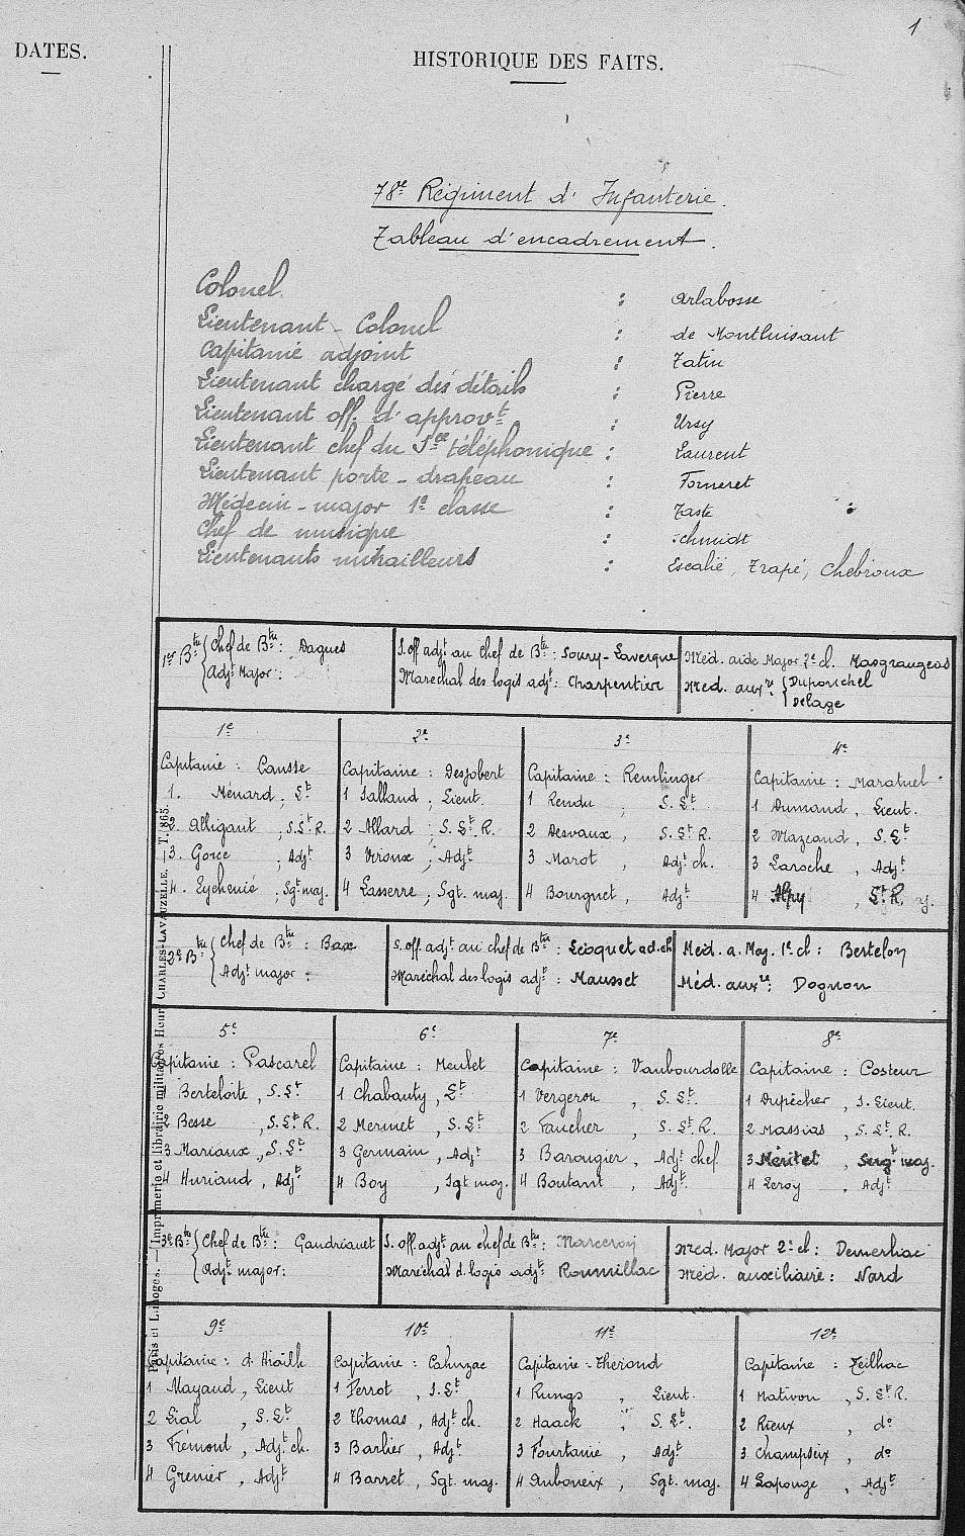 1
DATES.
HISTORIQUE DES FAITS.
78e Régiment d'Infanterie.
Tableau d'encadrement.
Colonel : Arlabosse
Lieutenant-Colonel : de Montluisant
Capitaine adjoint : Tatin
Lieutenant chargé des détails : Pierre
Lieutenant off. d'approvt : Ursy
Lieutenant chef du Sce téléphonique : Laurent
Lieutenant porte-drapeau : Forneret
Médecin-major 1e classe : Taste
Chef de musique : Schmidt
Lieutenants mitrailleurs : Escalié, Trapé, Chebroux
1er Bton { Chef de Bton : Dagues
Adjt Major :
S. off adjt au Chef de Bton : Soury-Lavergne
Maréchal des logis adjt : Charpentier
Méd. aide Major 2e cl. Masgranges
Med. auxre { Duponchel
Delage
1e
Capitaine : Causse
1. Ménard ; Lt
2. Alligant ; S. Lt R.
3. Gorce ; Adjt
4. Eychenié ; Sgt maj.
2e
Capitaine : Desjobert
1 Salland ; Lieut.
2 Allard ; S. Lt R.
3 Viroux ; Adjt
4 Lasserre ; Sgt. maj.
3e
Capitaine : Remlinger
1 Rendu ; S. Lt
2 Desvaux , S. Lt R.
3 Marot , Adjt ch.
4 Bourguet , Adjt
4e
Capitaine : Maratuel
1 Dumand , Lieut.
2 Mazeaud , S. Lt
3 Laroche , Adjt
4 Alpy , Lt R.
2e Bton { Chef de Bton : Bax
Adjt major :
S. off adjt au chef de Bton : Lecoquet ad. ch
Maréchal des logis adjt : Mausset
Méd. a. Maj. 1e cl : Bertelon
Méd. auxre : Dognon
5e
Capitaine : Pascarel
Berteloite , S. Lt
2 Besse , S. Lt R.
3 Mariaux , S. Lt
4 Huriaud , Adjt
6e
Capitaine : Meulet
1 Chabauty , Lt
2 Mermet , S. Lt
3 Germain , Adjt
4 Boy , Sgt maj.
7e
Capitaine : Vaubourdolle
1 Vergeron , S. Lt.
2 Faucher , S. Lt R.
3 Barougier , Adjt chef
4 Boutant , Adjt.
8e
Capitaine : Costeur
1 Dupêcher , S. Lieut.
2 Massias , S. Lt R.
3 Méritet , Sergt maj.
4 Leroy , Adjt
3e Bton { Chef de Bton : Gaudriauet
Adjt major :
S. off. adjt au chef de Bton : Marceron
Maréchal d. logis adjt Roumillac
Med. Major 2e cl : Demerliac
Méd. auxiliaire : Nard
9e
Capitaine : d'Arailh
1 Mayaud , Lieut
2 Lial , S. Lt
3 Frémont , Adjt ch.
4 Grenier , Adjt
10e
Capitaine : Cahuzac
1 Perrot , S. Lt
2 Thomas , Adjt ch.
3 Barlier , Adjt
4 Barret , Sgt maj.
11e
Capitaine : Therond
1 Rungs , Lieut.
2 Haack , S. Lt.
3 Fourtanié , Adjt
4 Auboneix , Sgt. maj.
12e
Capitaine : Teilhac
1 Mativon , S. Lt R.
2 Rieux , do
3 Champseix , do
4 Lapouge , Adjt
Paris et Limoges. — Imprimerie et librairie militaires Henri CHARLES-LAVAUZELLE. — T. 865.